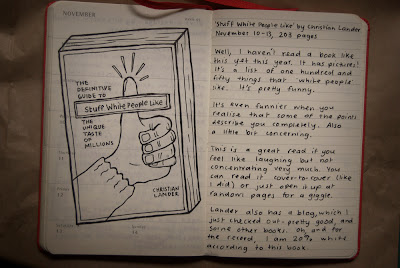 NOVEMBER
THE
DEFINITIVE
GUIDE TO
Stuff White People Like
THE
UNIQUE
TASTE
OF
MILLIONS
CHRISTIAN
LANDER
'Stuff White People Like' by Christian Lander
November 10-13, 203 pages
Well, I haven't read a book like
this yet this year. It has pictures!
It's a list of one hundred and
fifty things that 'white people'
like. It's pretty funny.
It's even funnier when you
realise that some of the points
describe you completely. Also
a little bit concerning.
This is a great read if you
feel like laughing but not
concentrating very much. You
can read it cover-to-cover (like
I did) or just open it up at
random pages for a giggle.
Lander also has a blog, which I
just checked out - pretty good, and
some other books. Oh, and for
the record, I am 20% white
according to this book.